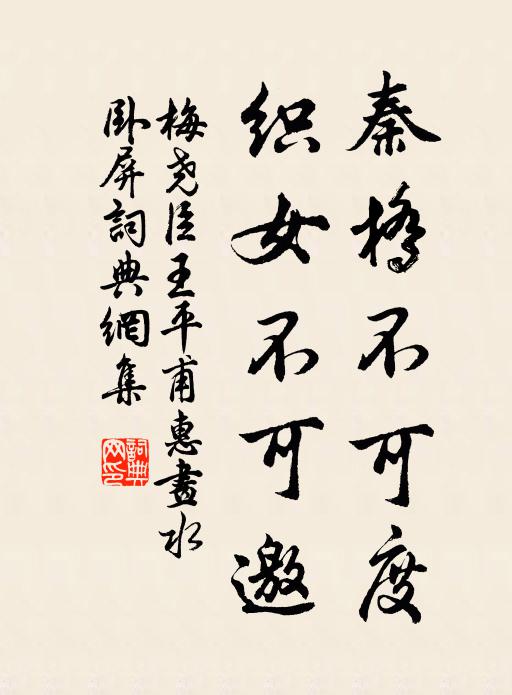 秦橋不可度
织女不可邀
梅尧臣王平甫惠畫水
卧屏詞典網集
詞典
网印